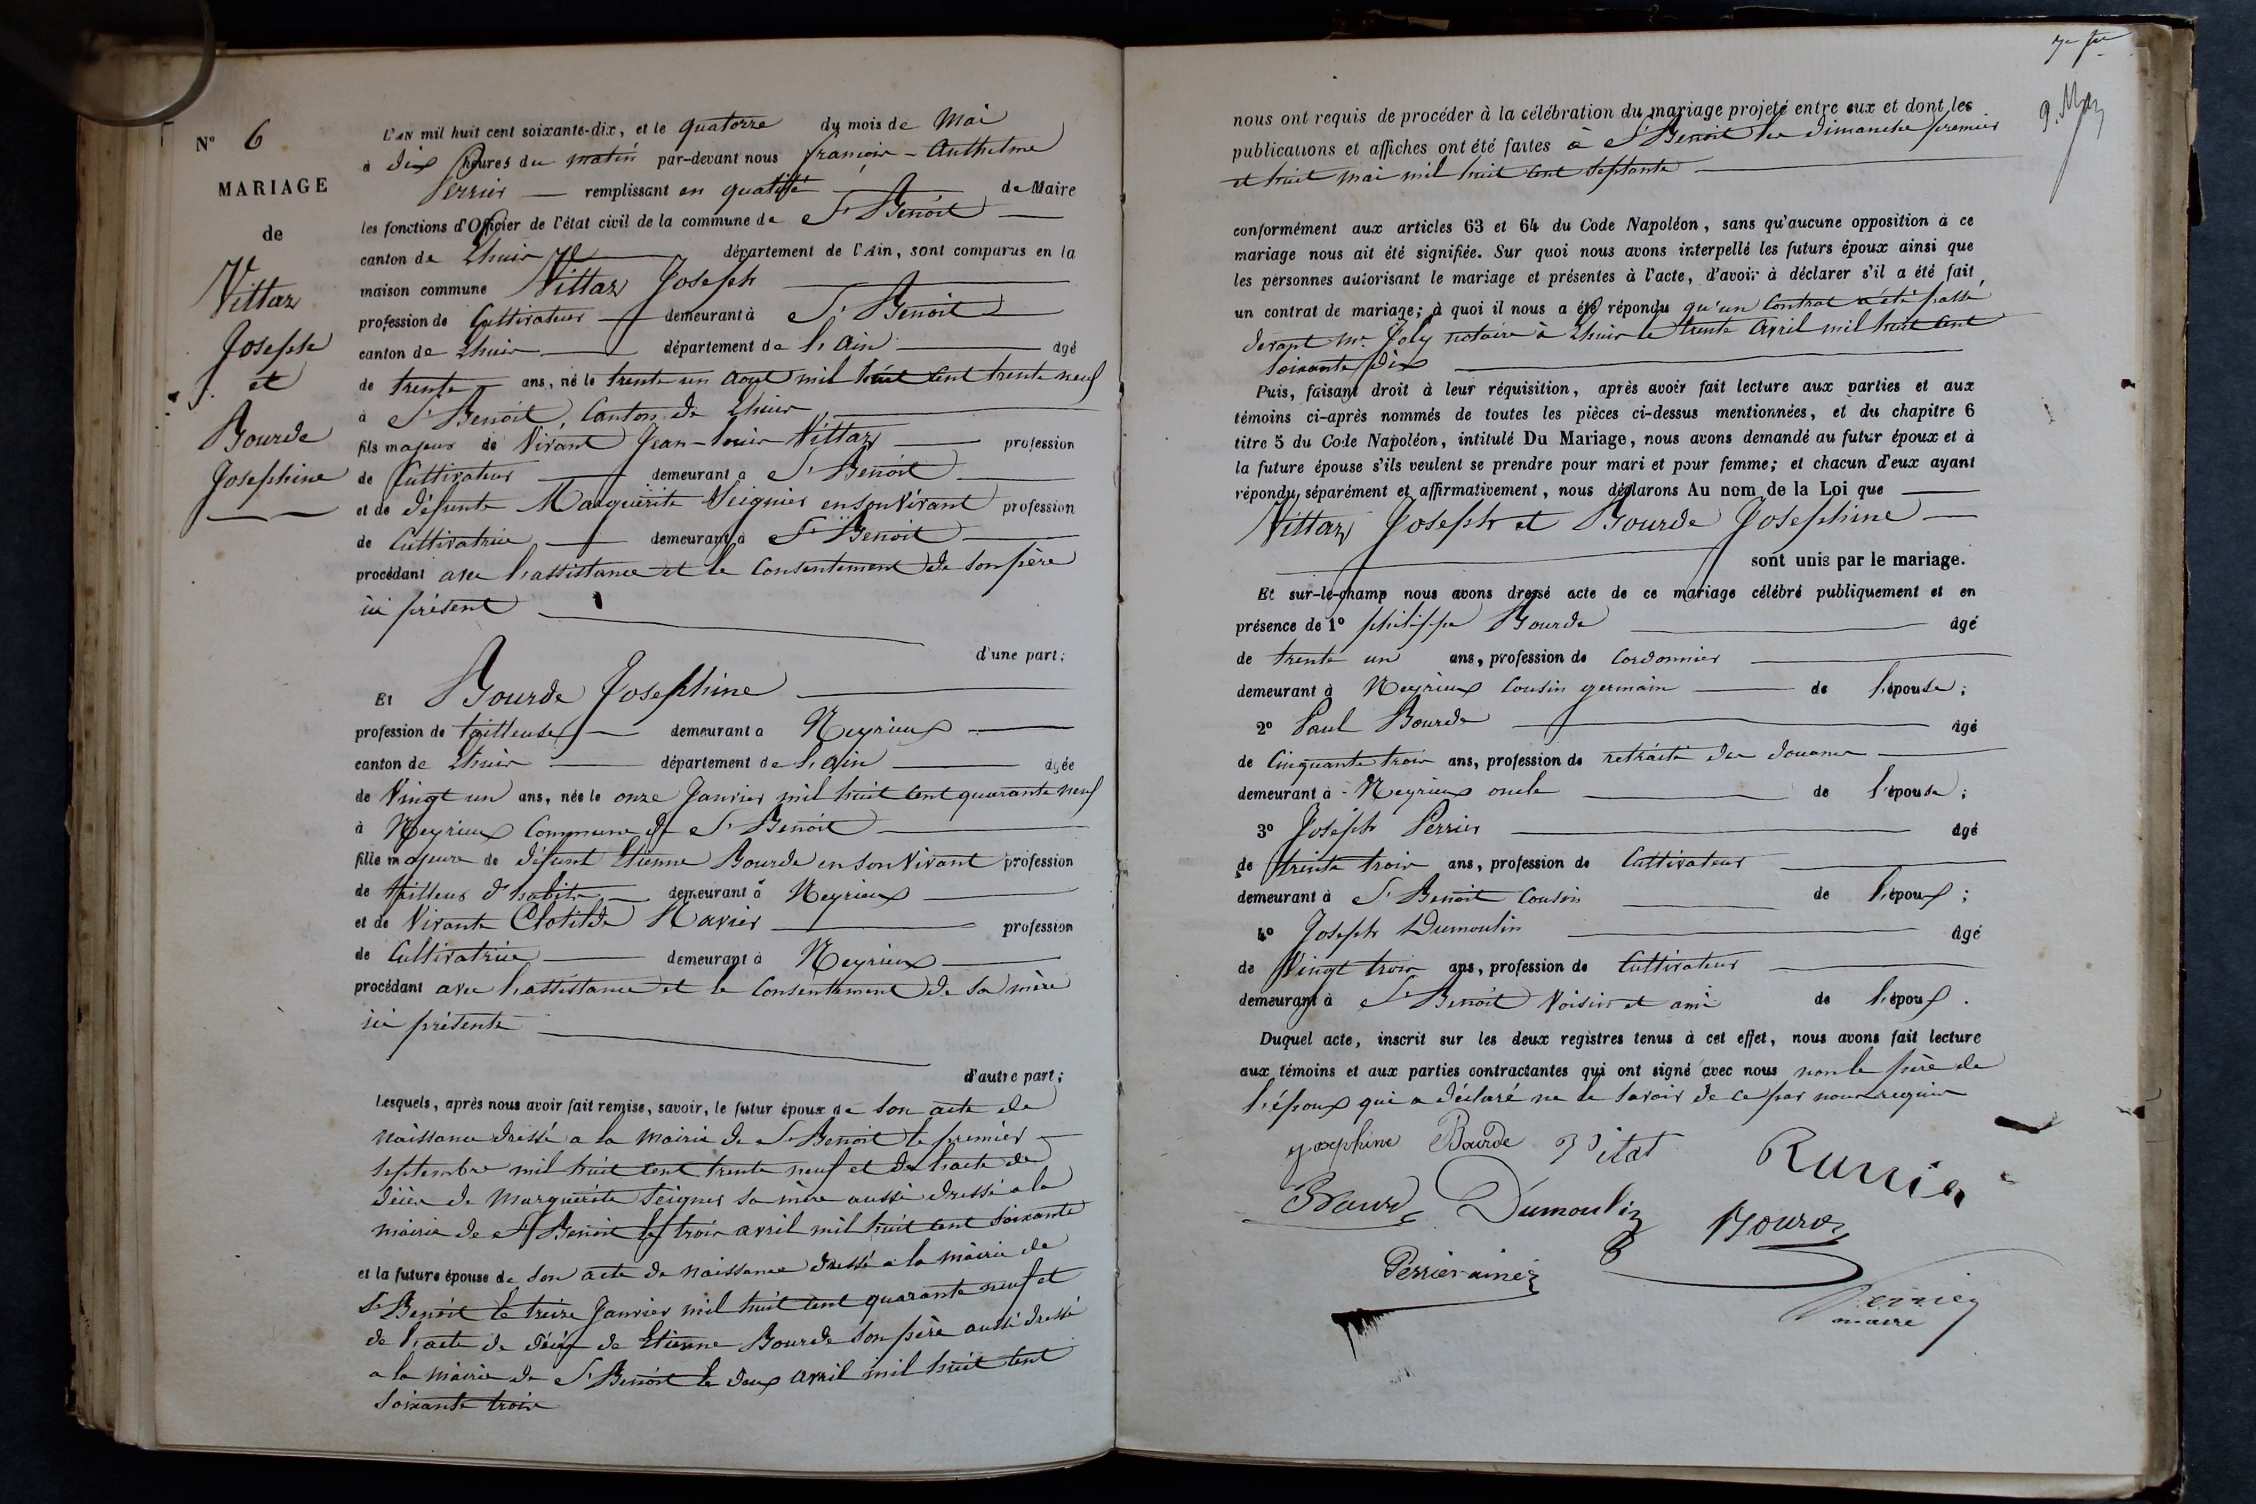 N° 6
MARIAGE
de
Vittaz
Joseph
et
Bourde
Josephine
L'AN mil huit cent soixante-dix, et le quatorze du mois de Mai
à dix heures du matin par-devant nous françois-Anthelme
Perrier remplissant en qualité de Maire
les fonctions d'Officier de l'état civil de la commune de St Benoit
canton de Lhuis département de l'Ain, sont comparus en la
maison commune Vittaz Joseph
profession de Cultivateur demeurant à St Benoit
canton de Lhuis département de l'Ain âgé
de trente ans, né le trente un aout mil huit cent trente neuf
à St Benoit, Canton de Lhuis
fils majeur de Vivant Jean-Louis Vittaz profession
de Cultivateur demeurant à St Benoit
et de défunte Marguerite Seignier en son Vivant profession
de Cultivatrice demeurant à St Benoit
procédant avec l'assistance et le Consentement de son père
ici présent
d'une part;
Et Bourde Josephine
profession de tailleuse demeurant à Neyrieux
canton de Lhuis département de l'ain âgée
de Vingt un ans, née le onze Janvier mil huit cent quarante neuf
à Neyrieux Commune de St Benoit
fille majeure de défunt Etienne Bourde en son Vivant profession
de tailleur d'habits demeurant à Neyrieux
et de Vivante Clotilde Ravier profession
de Cultivatrice demeurant à Neyrieux
procédant avec l'assistance et le Consentement de sa mère
ici présente
d'autre part;
Lesquels, après nous avoir fait remise, savoir, le futur époux de son acte de
naissance dressé a la mairie de St Benoit le premier
septembre mil huit cent trente neuf et de l'acte de
décès de Marguerite Seigner sa mère aussi dressé a la
mairie de St Benoit le trois avril mil huit cent soixante
et la future épouse de son acte de naissance dressé a la mairie de
St Benoit le treize Janvier mil huit cent quarante neuf et
de l'acte de décès de Etienne Bourde son père aussi dressé
a la mairie de St Benoit le deux avril mil huit cent
soixante trois
9. Mai
nous ont requis de procéder à la célébration du mariage projeté entre eux et dont les
publications et affiches ont été faites à St Benoit les dimanches premier
et huit mai mil huit cent septante
conformément aux articles 63 et 64 du Code Napoléon, sans qu'aucune opposition à ce
mariage nous ait été signifiée. Sur quoi nous avons interpellé les futurs époux ainsi que
les personnes autorisant le mariage et présentes à l'acte, d'avoir à déclarer s'il a été fait
un contrat de mariage; à quoi il nous a été répondu qu'un Contrat a été passé
devant Me Joly notaire à Lhuis le trente Avril mil huit cent
soixante dix
Puis, faisant droit à leur réquisition, après avoir fait lecture aux parties et aux
témoins ci-après nommés de toutes les pièces ci-dessus mentionnées, et du chapitre 6
titre 5 du Code Napoléon, intitulé Du Mariage, nous avons demandé au futur époux et à
la future épouse s'ils veulent se prendre pour mari et pour femme; et chacun d'eux ayant
répondu séparément et affirmativement, nous déclarons Au nom de la Loi que
Vittaz Joseph et Bourde Josephine
sont unis par le mariage.
Et sur-le-champ nous avons dressé acte de ce mariage célébré publiquement et en
présence de 1° philippe Bourde âgé
de trente un ans, profession de Cordonnier
demeurant à Neyrieux Cousin germain de l'épouse;
2° Paul Bourde âgé
de Cinquante trois ans, profession de retraité des douanes
demeurant à Neyrieux oncle de l'épouse;
3° Joseph Perrier âgé
de trente trois ans, profession de Cultivateur
demeurant à St Benoit Cousin de l'époux;
4° Joseph Dumoulin âgé
de Vingt trois ans, profession de Cultivateur
demeurant à St Benoit Voisin et ami de l'époux.
Duquel acte, inscrit sur les deux registres tenus à cet effet, nous avons fait lecture
aux témoins et aux parties contractantes qui ont signé avec nous non le père de
l'époux qui a déclaré ne le savoir de ce par nous requis
Josephine Bourde Vitat
Bourde Dumoulin Bourde
Perrier ainé
Perrier
maire